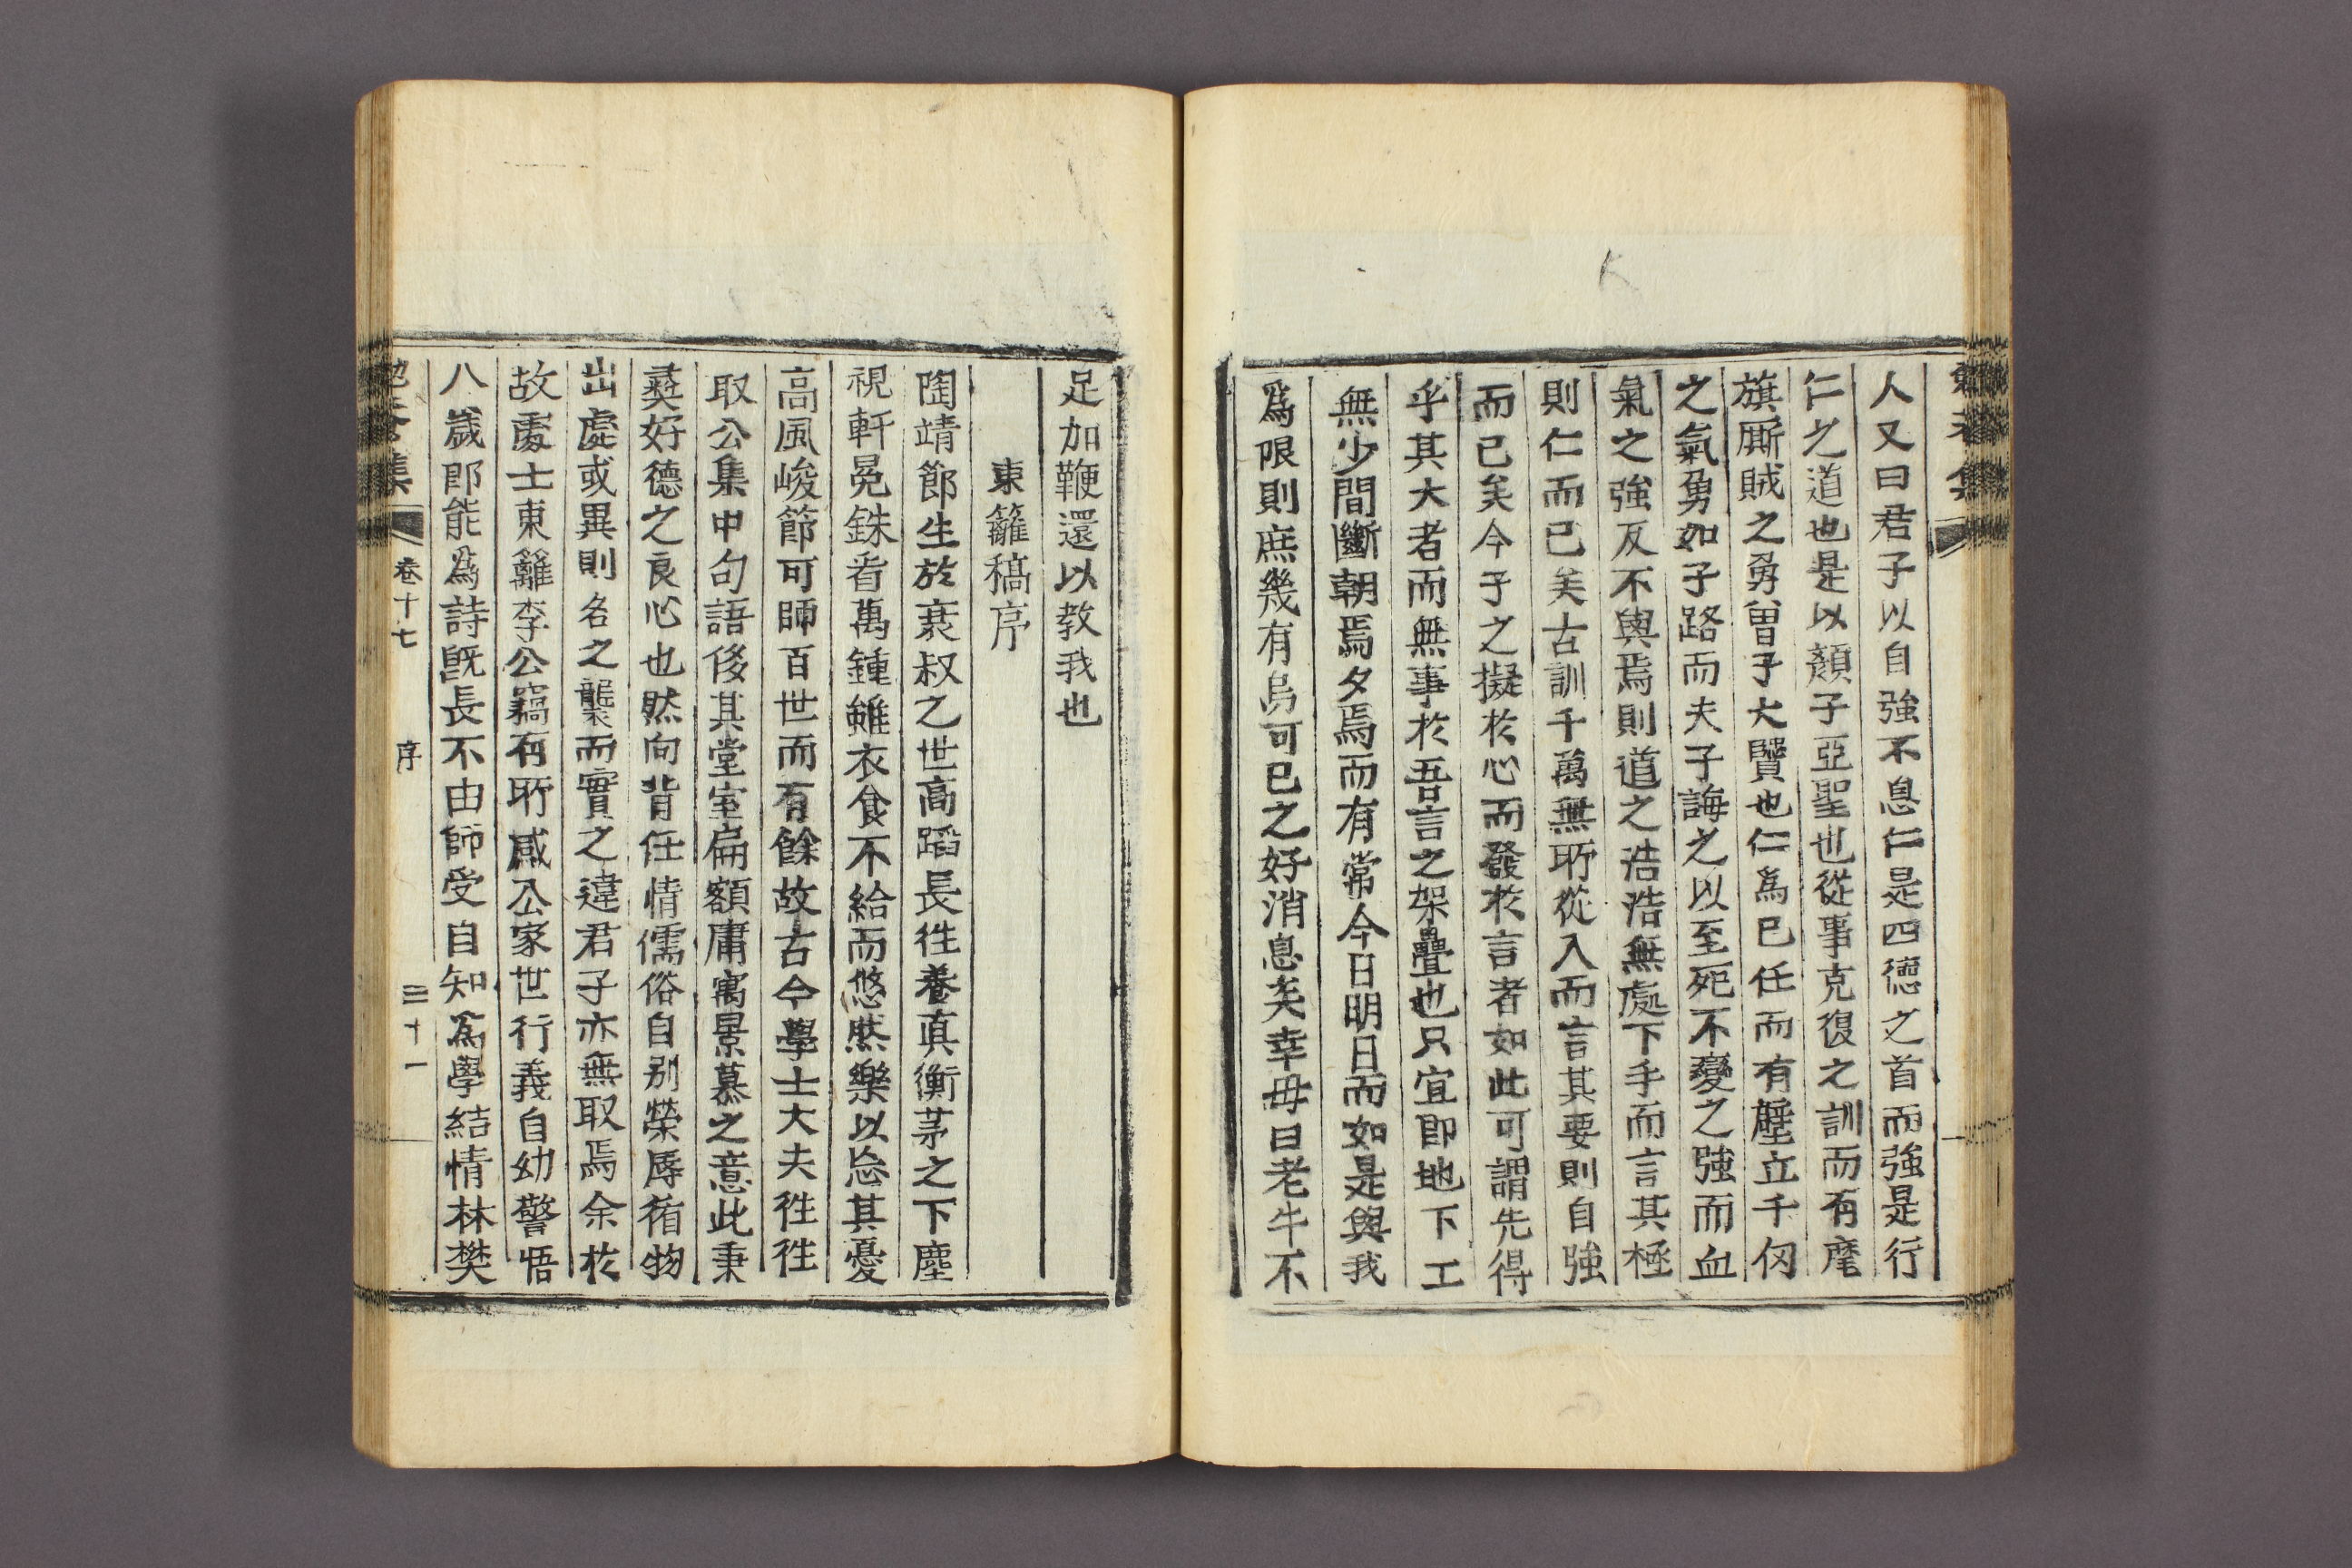 人又曰君子以自強不息仁是四德之首而強是行
仁之道也是以顏子亞聖也從事克復之訓而有麾
旗厮賊之勇曾子大賢也仁爲己任而有壁立千仞
之氣勇如子路而夫子誨之以至死不變之強而血
氣之強反不與焉則道之浩浩無處下手而言其極
則仁而已矣古訓千萬無所從入而言其要則自強
而已矣今子之擬於心而發於言者如此可謂先得
乎其大者而無事於吾言之架疊也只宜即地下工
無少間斷朝焉夕焉而有常今日明日而如是與我
爲限則庶幾有烏可已之好消息矣幸毋曰老牛不
足加鞭還以教我也
東籬稿序
陶靖節生於衰叔之世高蹈長徃養眞衡茅之下塵
視軒冕銖看萬鍾雖衣食不給而悠然樂以忘其憂
高風峻節可師百世而有餘故古今學士大夫徃徃
取公集中句語侈其堂室扁額庸寓景慕之意此秉
彝好德之良心也然向背任情儒俗自别榮辱循物
出處或異則名之襲而實之違君子亦無取焉余於
故處士東籬李公竊有所感公家世行義自幼警悟
八歲即能爲詩旣長不由師受自知爲學結情林樊
集 卷十七 序 三十一